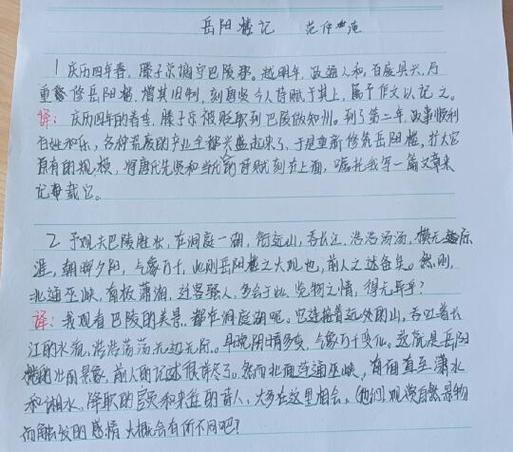 岳阳楼记 范仲淹
1 庆历四年春，滕子京谪守巴陵郡。越明年，政通人和，百废具兴，乃
重修岳阳楼，增其旧制，刻唐贤今人诗赋于其上，属予作文以记之。
译：庆历四年的春季，滕子京被贬职到巴陵做知州。到了第二年，政事顺利
百姓和乐，各种荒废的产业全都兴盛起来了，于是重新修筑岳阳楼，扩大它
原有的规模，将唐代先贤和当代的诗赋刻在上面，嘱托我写一篇文章来
记载它。
2 予观夫巴陵胜状，在洞庭一湖，衔远山，吞长江，浩浩汤汤，横无际
涯，朝晖夕阴，气象万千，此则岳阳楼之大观也，前人之述备矣。然则，
北通巫峡，南极潇湘，迁客骚人，多会于此，览物之情，得无异乎？
译：我观看巴陵的美景，都在洞庭湖呢。它连接着远处的山，吞吐着长
江的水流，浩浩荡荡无边无际。早晚阴晴多变，气象万千变化。这就是岳阳
楼的壮阔景象，前人的记述很详尽了。然而北面连通巫峡，南面直至潇水
和湘水。降职的官员和来往的诗人，大多在这里相会，他们观赏自然景物
而触发的感情大概会有所不同吧？